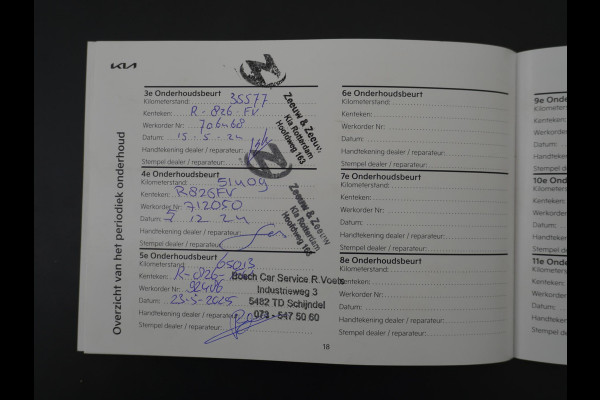 KIA
Overzicht van het periodiek onderhoud
3e Onderhoudsbeurt
Kilometerstand: 35577
Kenteken: R-826 FV
Werkorder Nr: 706468
Datum: 15-5-24
Handtekening dealer / reparateur:
Stempel dealer / reparateur:
Zeeuw & Zeeuw
Kia Rotterdam
Hoofdweg 163
4e Onderhoudsbeurt
Kilometerstand: 51409
Kenteken: R826FV
Werkorder Nr: 712050
Datum: 5 12 24
Handtekening dealer / reparateur:
Stempel dealer / reparateur:
Zeeuw & Zeeuw
Kia Rotterdam
Hoofdweg 163
5e Onderhoudsbeurt
Kilometerstand: 65013
Kenteken: R-826-
Werkorder Nr:
Datum: 23-5-2025
Handtekening dealer / reparateur:
Stempel dealer / reparateur:
Bosch Car Service R.Voets
Industrieweg 3
5482 TD Schijndel
073 - 547 50 60
18
6e Onderhoudsbeurt
Kilometerstand:
Kenteken:
Werkorder Nr:
Datum:
Handtekening dealer / reparateur:
Stempel dealer / reparateur:
7e Onderhoudsbeurt
Kilometerstand:
Kenteken:
Werkorder Nr:
Datum:
Handtekening dealer / reparateur:
Stempel dealer / reparateur:
8e Onderhoudsbeurt
Kilometerstand:
Kenteken:
Werkorder Nr:
Datum:
Handtekening dealer / reparateur:
Stempel dealer / reparateur:
9e On
Kilometer
Kenteken:
Werkorder
Datum:
Handteken
Stempel de
10e On
Kilometers
Kenteken:
Werkorder
Datum:
Handteken
Stempel de
11e On
Kilometers
Kenteken:
Werkorder
Datum:
Handteken
Stempel de